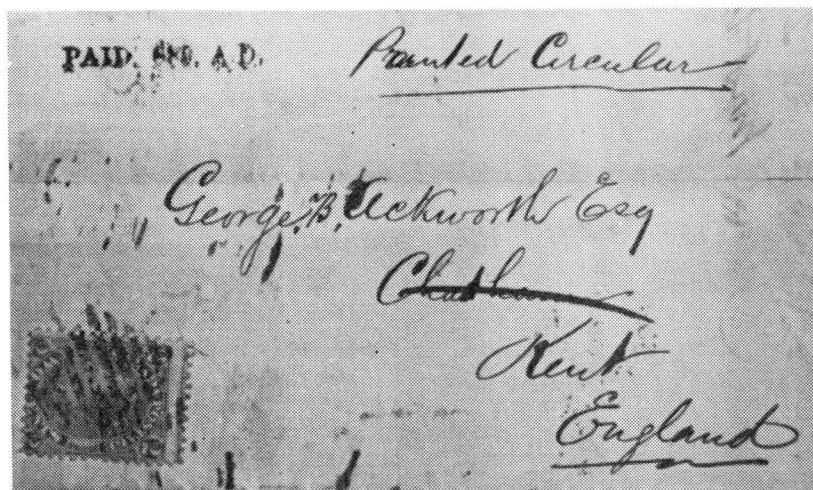 PAID. A.D. Printed Circular
George. B. Ackworth Esq
Chatham
Kent
England